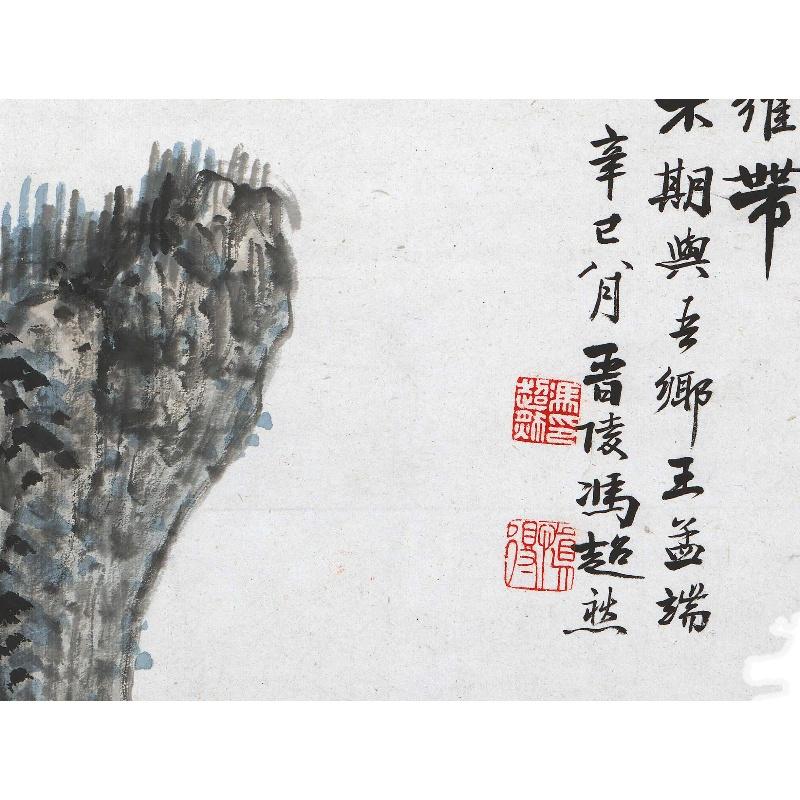 帶
期與吾鄉王孟端
辛巳八月晋陵馮超然
馮超然印